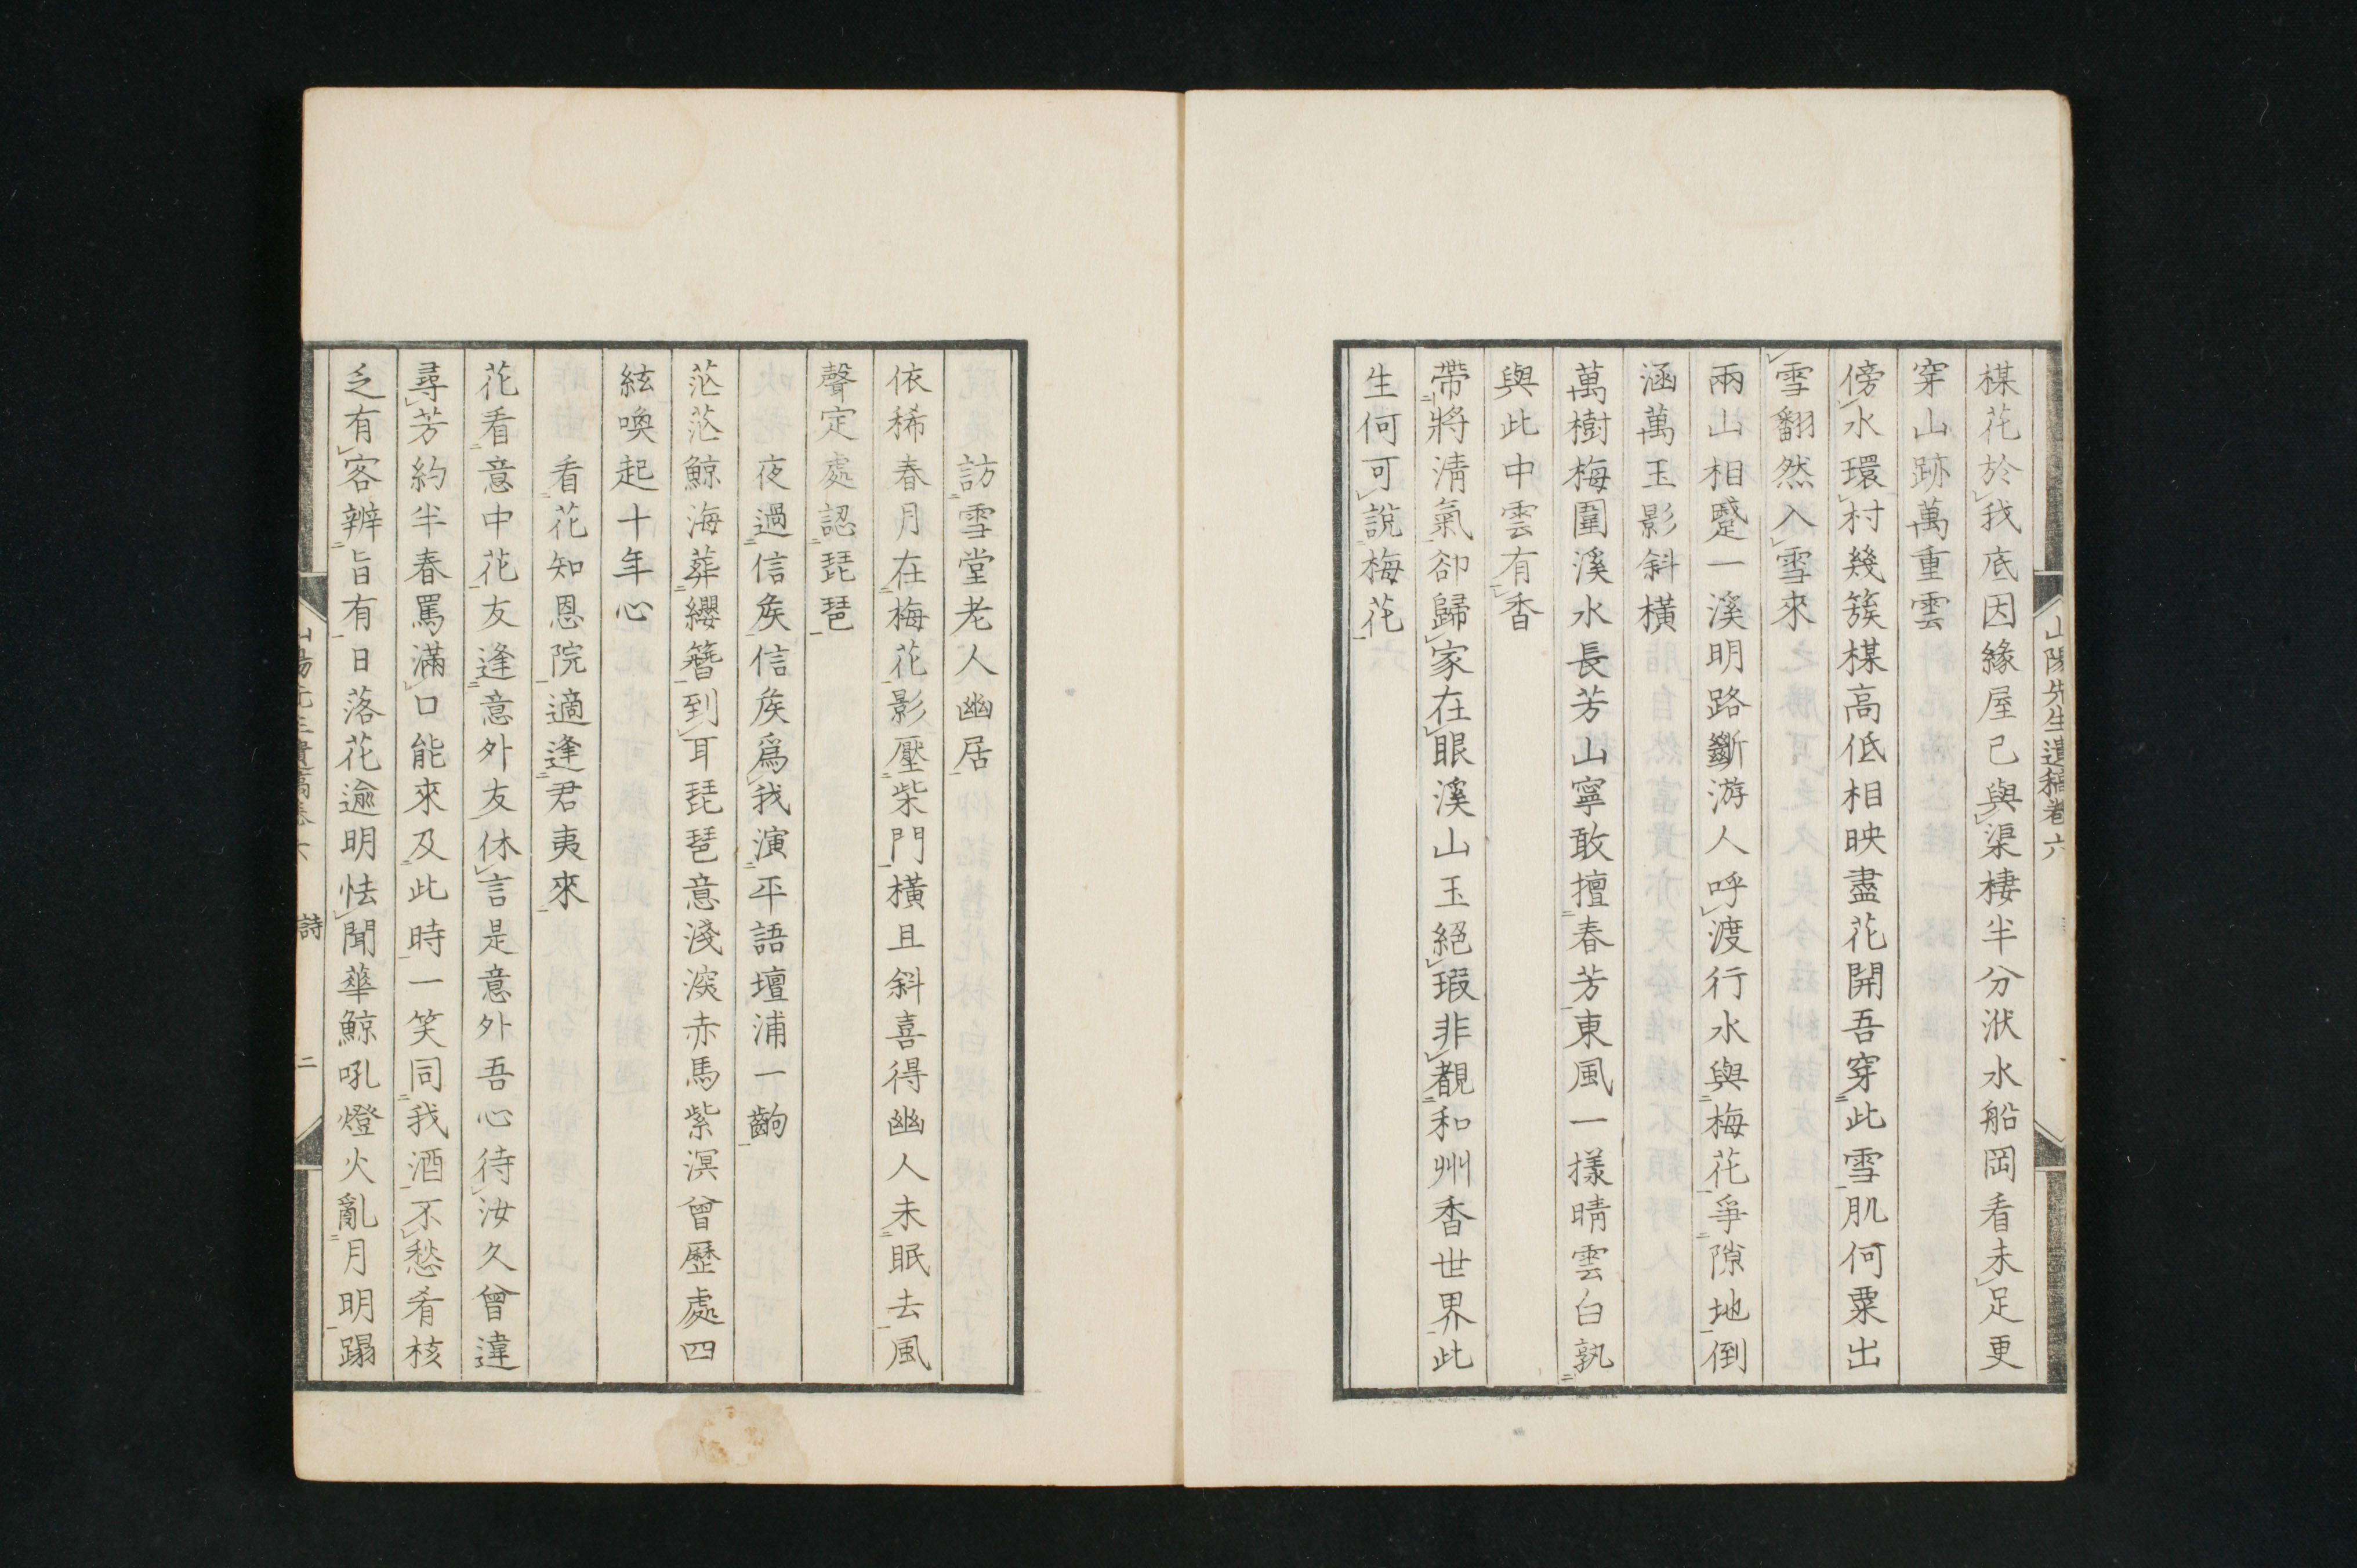 山陽先生遺稿卷六
楳花於我底因緣屋已與渠棲半分洑水船岡看未足更
穿山跡萬重雲
傍水環村幾簇楳高低相映盡花開吾穿此雪肌何粟出
雪翻然入雪來
兩山相蹙一溪明路斷游人呼渡行水與梅花爭隙地倒
涵萬玉影斜橫
萬樹梅圍溪水長芳山寧敢擅春芳東風一樣晴雲白孰
與此中雲有香
帶將清氣卻歸家在眼溪山玉絕瑕非觀和州香世界此
生何可說梅花
訪雪堂老人幽居
依稀春月在梅花影壓柴門橫且斜喜得幽人未眠去風
聲定處認琵琶
夜過信矦信矦爲我演平語壇浦一齣
茫茫鯨海葬纓簪到耳琵琶意淺深赤馬紫溟曾歷處四
絃喚起十年心
看花知恩院適逢君夷來
花看意中花友逢意外友休言是意外吾心待汝久曾違
尋芳約半春罵滿口能來及此時一笑同我酒不愁肴核
乏有客辨旨有日落花逾明怯聞華鯨吼燈火亂月明蹋
山陽先生遺稿卷六 詩 二